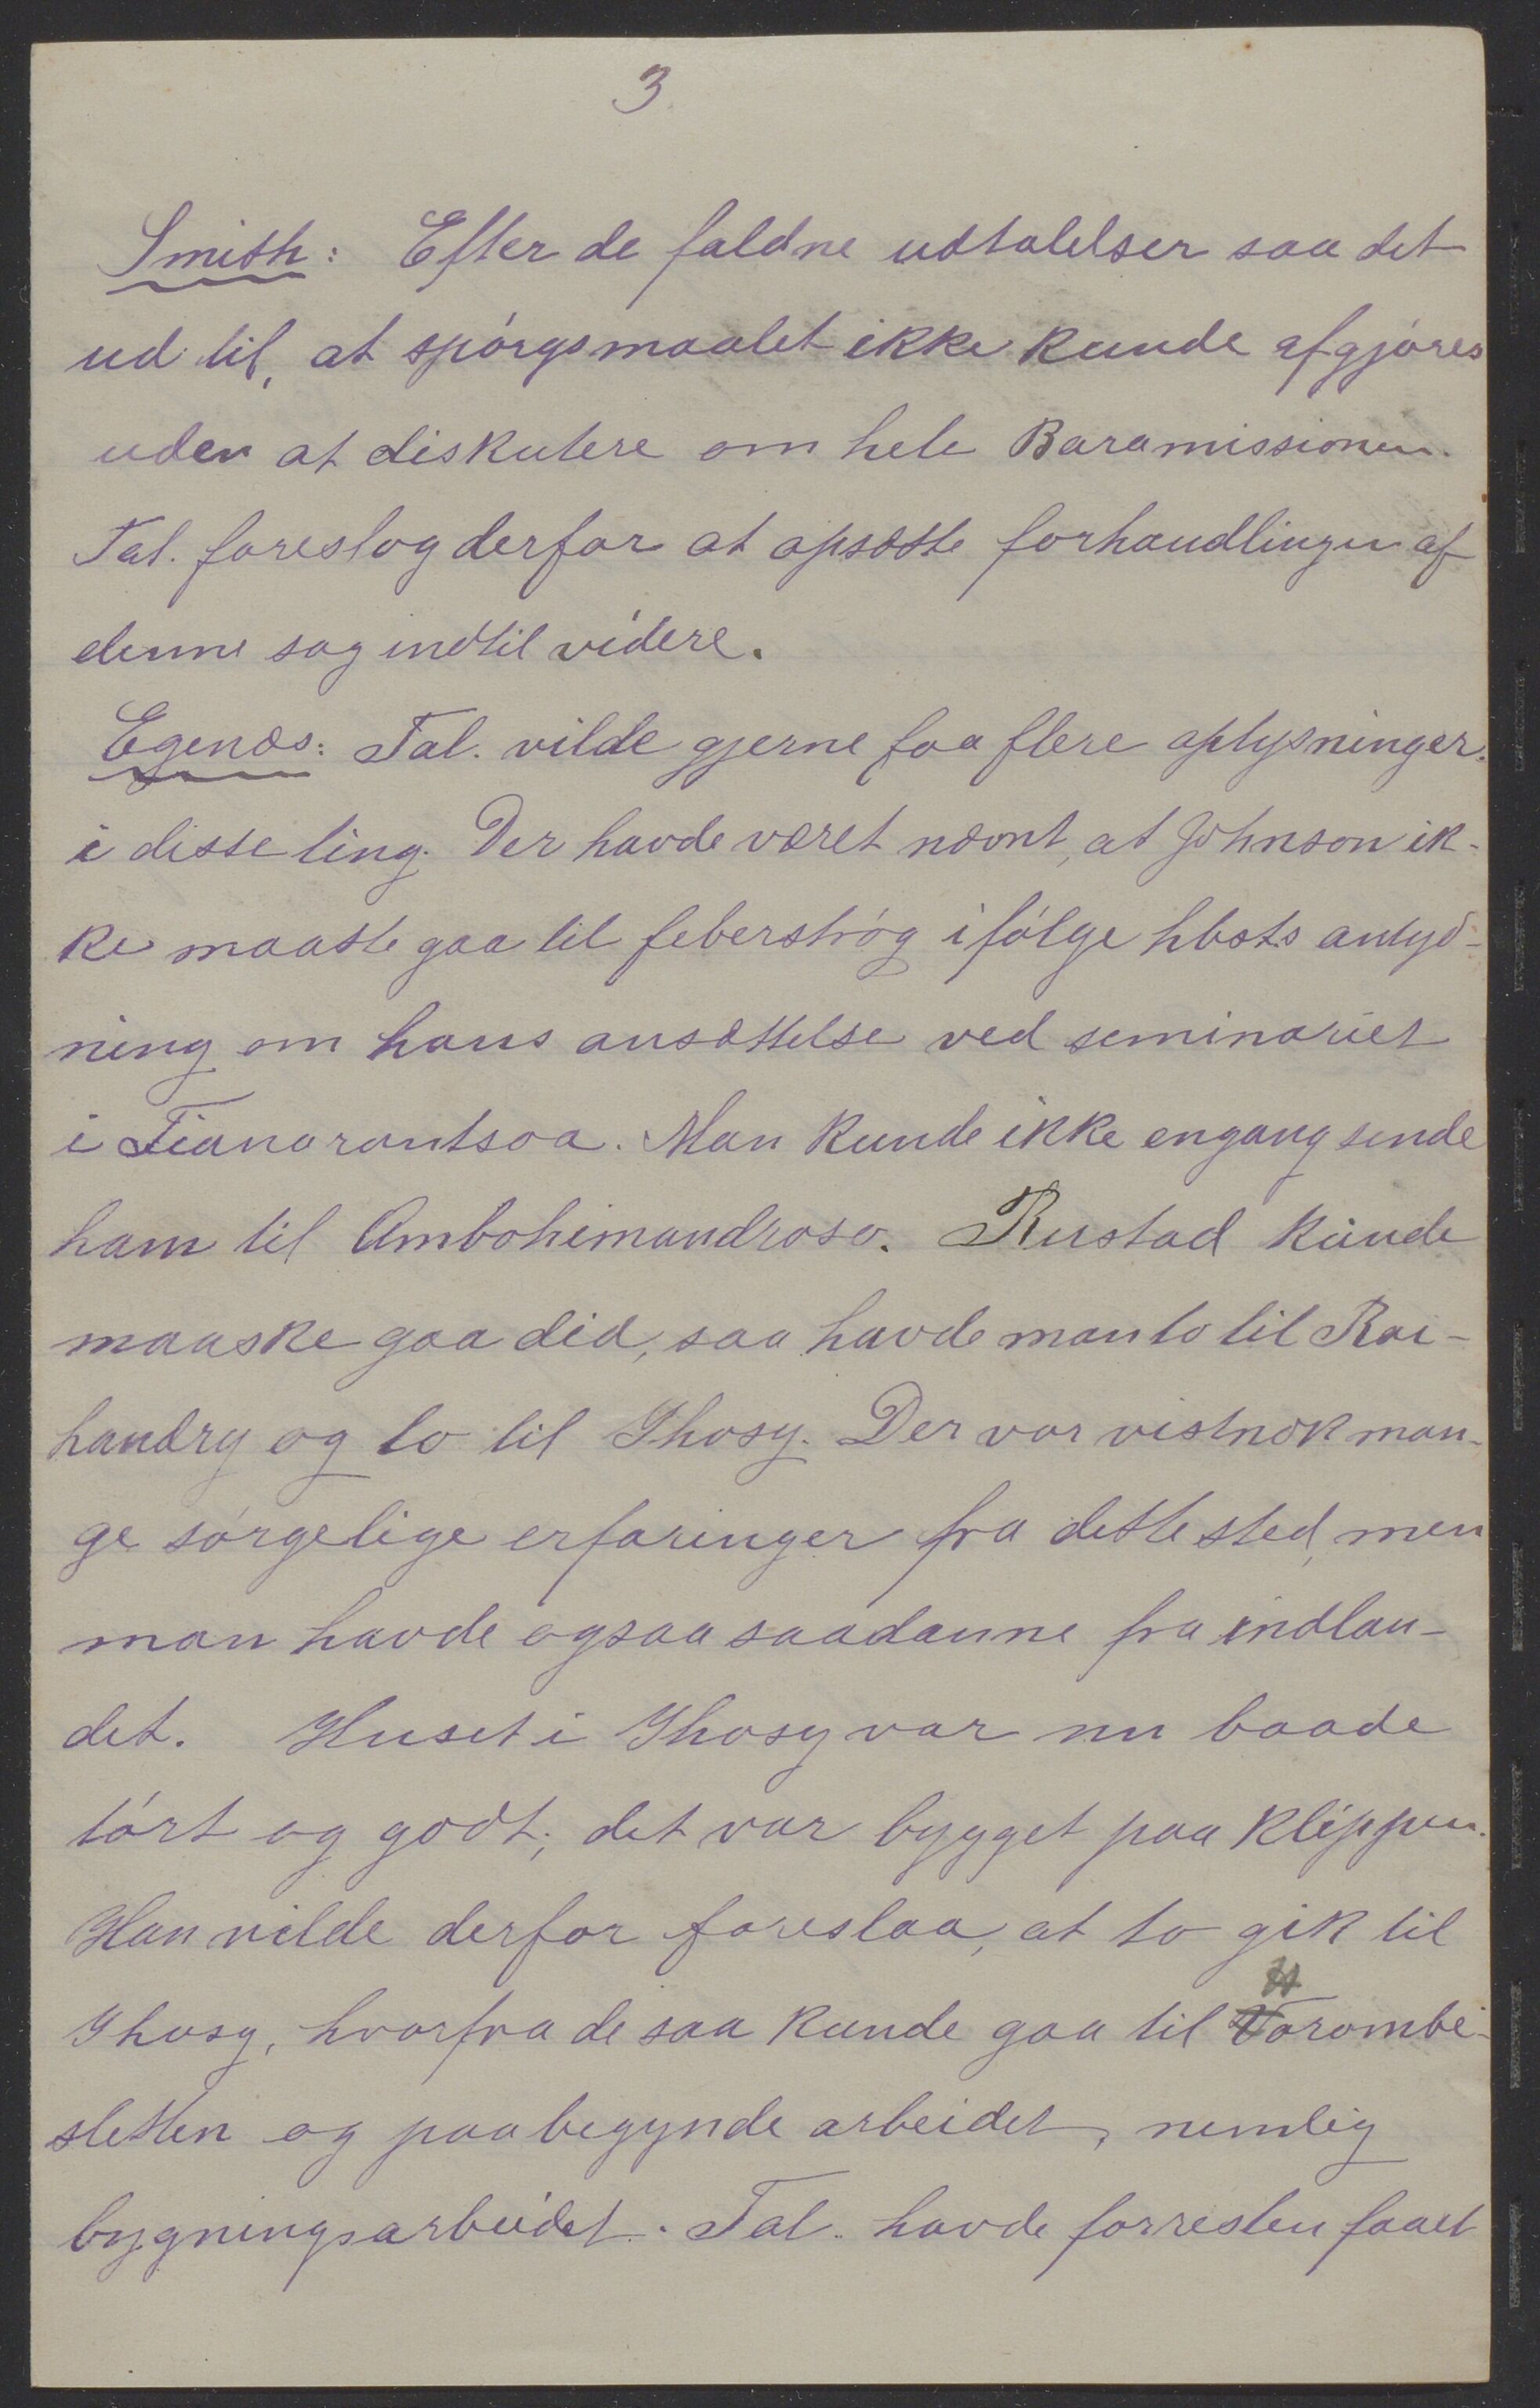 3
Smith: Efter de faldne udtalelser saa det
ud til, at spórgsmaalet ikke kunde afgjóres
uden at diskutere om hele Baramissionen.
Tal. foreslog derfor at opsætte forhandlingen af
denne sag indtil videre.
Egenæs: Tal. vilde gjerne faa flere oplysninger
i disse ting. Der havde været nævnt, at Johnson ik-
ke maatte gaa til feberstrøg ifólge hbsts antyd-
ning om hans ansættelse ved seminariet
i Fianarantsoa. Man kunde ikke engang sende
ham til Ambohimandroso. Rustad kunde
maaske gaa did, saa havde man to til Rai-
handry og to til Ihosy. Der var vistnok man-
ge sórgelige erfaringer fra dette sted, men
man havde ogsaa saadanne fra indlan-
det. Huset i Ihosy var nu baade
tórt og godt; det var bygget paa klippen.
Han vilde derfor foreslaa, at to gik til
Ihosy, hvorfra de saa kunde gaa til Horombe-
sletten og paabegynde arbeidet, nemlig
bygningsarbeidet. Tal. havde forresten faaet